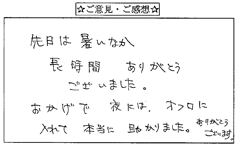 ☆ご意見・ご感想☆
先日は暑いなか
長時間 ありがとう
ございました。
おかげで 夜には、オフロに
入れて 本当に 助かりました。ありがとう
ございます。